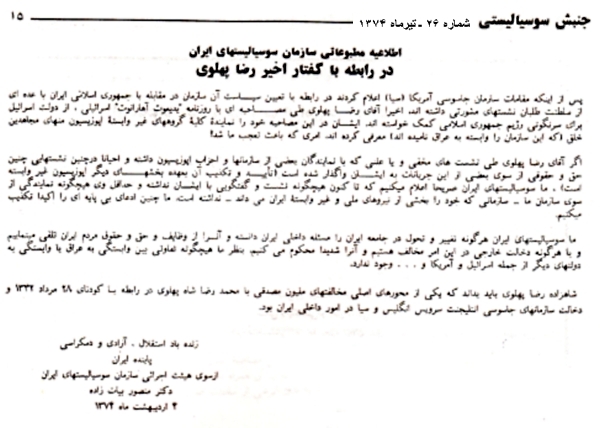 جنبش سوسیالیستی شماره ۲۶ ـ تیرماه ۱۳۷۴ ۱۵
اطلاعیه مطبوعاتی سازمان سوسیالیستهای ایران
در رابطه با گفتار اخیر رضا پهلوی
پس از اینکه مقامات سازمان جاسوسی آمریکا (سیا) اعلام کردند در رابطه با تعیین سیاست آن سازمان در مقابله با جمهوری اسلامی ایران با عده ای
از سلطنت طلبان نشستهای مشورتی داشته اند، اخیرا آقای رضا پهلوی طی مصاحبه ای با روزنامه "یدیعوت آهارانوت" اسرائیلی، از دولت اسرائیل
برای سرنگونی رژیم جمهوری اسلامی کمک خواسته اند. ایشان در این مصاحبه خود را نمایندهٔ کلیهٔ گروههای غیر وابستهٔ اپوزیسیون منهای مجاهدین
خلق (که این سازمان را وابسته به عراق نامیده اند) معرفی کرده اند. امری که باعث تعجب ما شد!
اگر آقای رضا پهلوی طی نشست های مخفی و یا علنی که با نمایندگان بعضی از سازمانها و احزاب اپوزیسیون داشته و احیانا درچنین نشستهایی چنین
حق و حقوقی از سوی بعضی از این جریانات به ایشان واگذار شده است (تأیید و تکذیب آن بعهده بخشهای دیگر اپوزیسیون غیر وابسته
است)، ما سوسیالیستهای ایران صریحا اعلام میکنیم که تا کنون هیچگونه نشست و گفتگویی با ایشان نداشته و حداقل وی هیچگونه نمایندگی از
سوی سازمان ما ـ سازمانی که خود را بخشی از نیروهای ملی و غیر وابستهٔ ایران می داند ـ نداشته است. ما چنین ادعای بی پایه ای را اکیدا تکذیب
میکنیم.
ما سوسیالیستهای ایران هرگونه تغییر و تحول در جامعه ایران را مسئله داخلی ایران دانسته و آنرا از وظایف و حق و حقوق مردم ایران تلقی مینماییم
و با هرگونه دخالت خارجی در این امر مخالف هستیم و آنرا شدیدا محکوم می کنیم. بنظر ما هیچگونه تفاوتی بین وابستگی به عراق با وابستگی به
دولتهای دیگر از جمله اسرائیل و آمریکا و . . . وجود ندارد.
شاهزاده رضا پهلوی باید بداند که یکی از محورهای اصلی مخالفتهای ملیون مصدقی با محمد رضا شاه پهلوی در رابطه با کودتای ۲۸ مرداد ۱۳۳۲ و
دخالت سازمانهای جاسوسی انتلیجنت سرویس انگلیس و سیا در امور داخلی ایران بود.
زنده باد استقلال، آزادی و دمکراسی
پاینده ایران
ازسوی هیئت اجرائی سازمان سوسیالیستهای ایران
دکتر منصور بیات زاده
۴ اردیبهشت ماه ۱۳۷۴